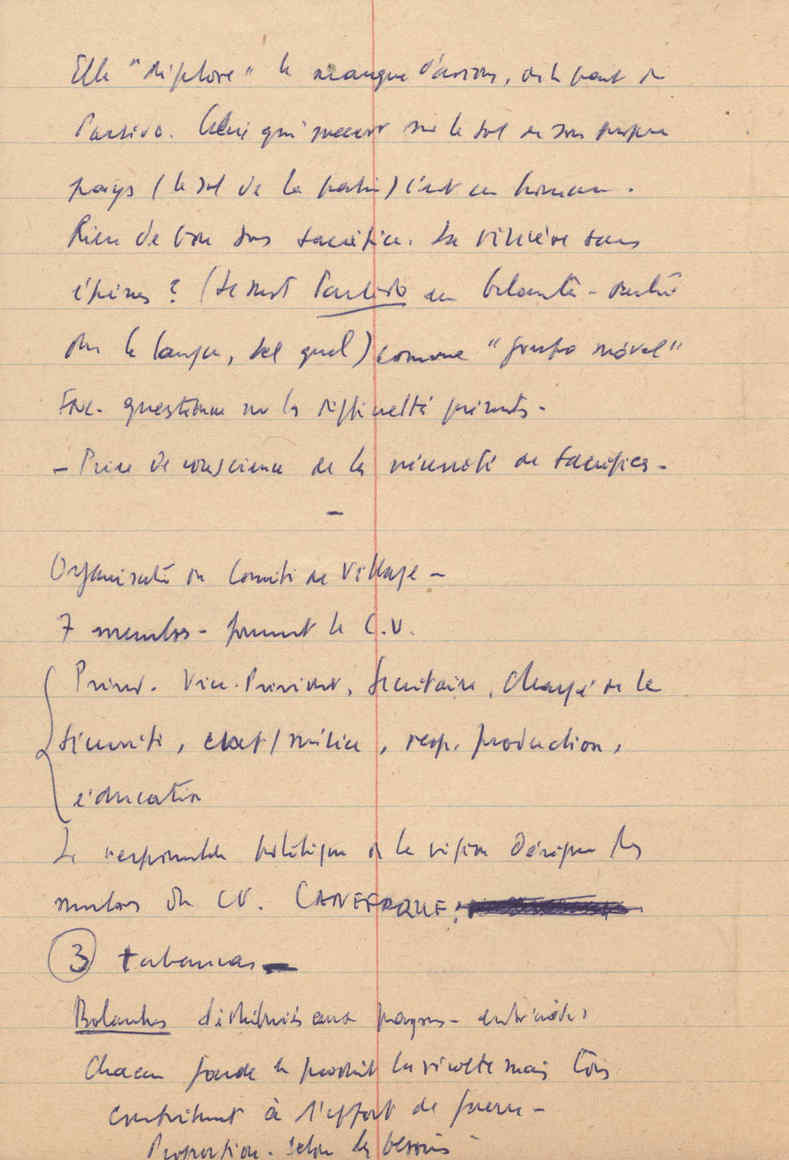 Elle "déplore" le manque d'avions, de la part de
Partido. Celui qui meurt sur le sol de son propre
pays (le sol de la patrie) c'est un homme.
Rien de bon sans sacrifice. La rizière sans
épines? (Le mot Partido en balante -
dans la langue, tel quel) comme "grupo móvel"
questionne sur les difficultés présentes -
- Prise de conscience de la nécessité de sacrifices -
-
Organisation du Comité de Village -
7 membres - forment le C.V.
Présid. Vice-Président, Secrétaire, Chargé de la
sécurité, chef/milice, resp. production,
éducation
Le responsable politique de la région désigne les
membres du CV. CANEFAQUE:
3 tabancas -
Balantes distribués aux paysans -
Chacun garde le produit la récolte mais tous
contribuent à l'effort de guerre -
Proportion - selon les besoins -